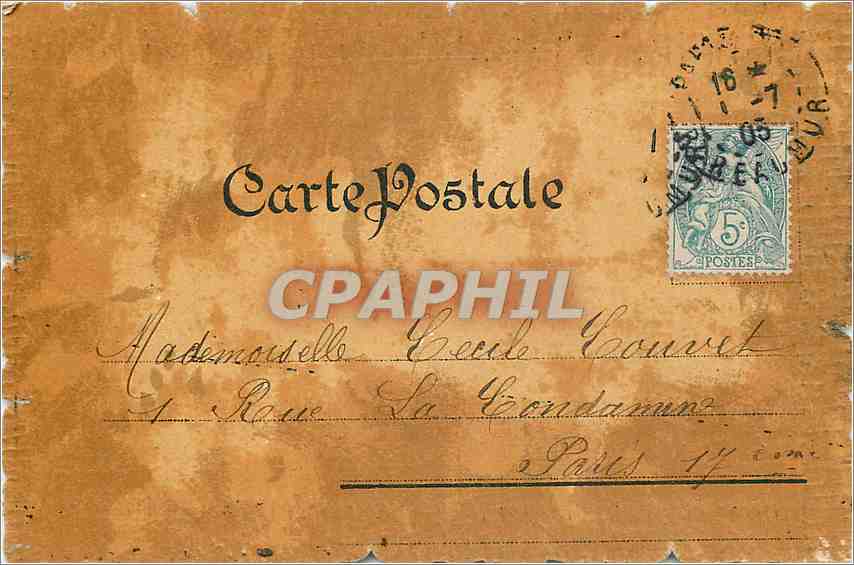 16
1 -7
05
Carte Postale
5c
POSTES
CPAPHIL
Mademoiselle Cecile Couvet
1 Rue La Condamine
Paris 17 eme